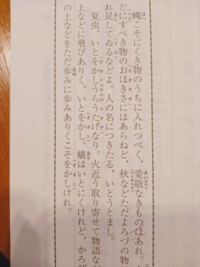 蠅こそにくき物のうちに入れつべく、愛敬なきものはあれ。
どにすべき物のおほきさにはあらねど、秋などただよろづの物
れ足してゐるなどよ。人の名につきたる、いとうとまし。
夏虫、いとをかしうらうたげなり。火近う取り寄せて物語な
上などに飛びありく、いとをかし。蟻はいとにくけれど、かろび
の上などをただ歩みに歩みありくこそをかしけれ。